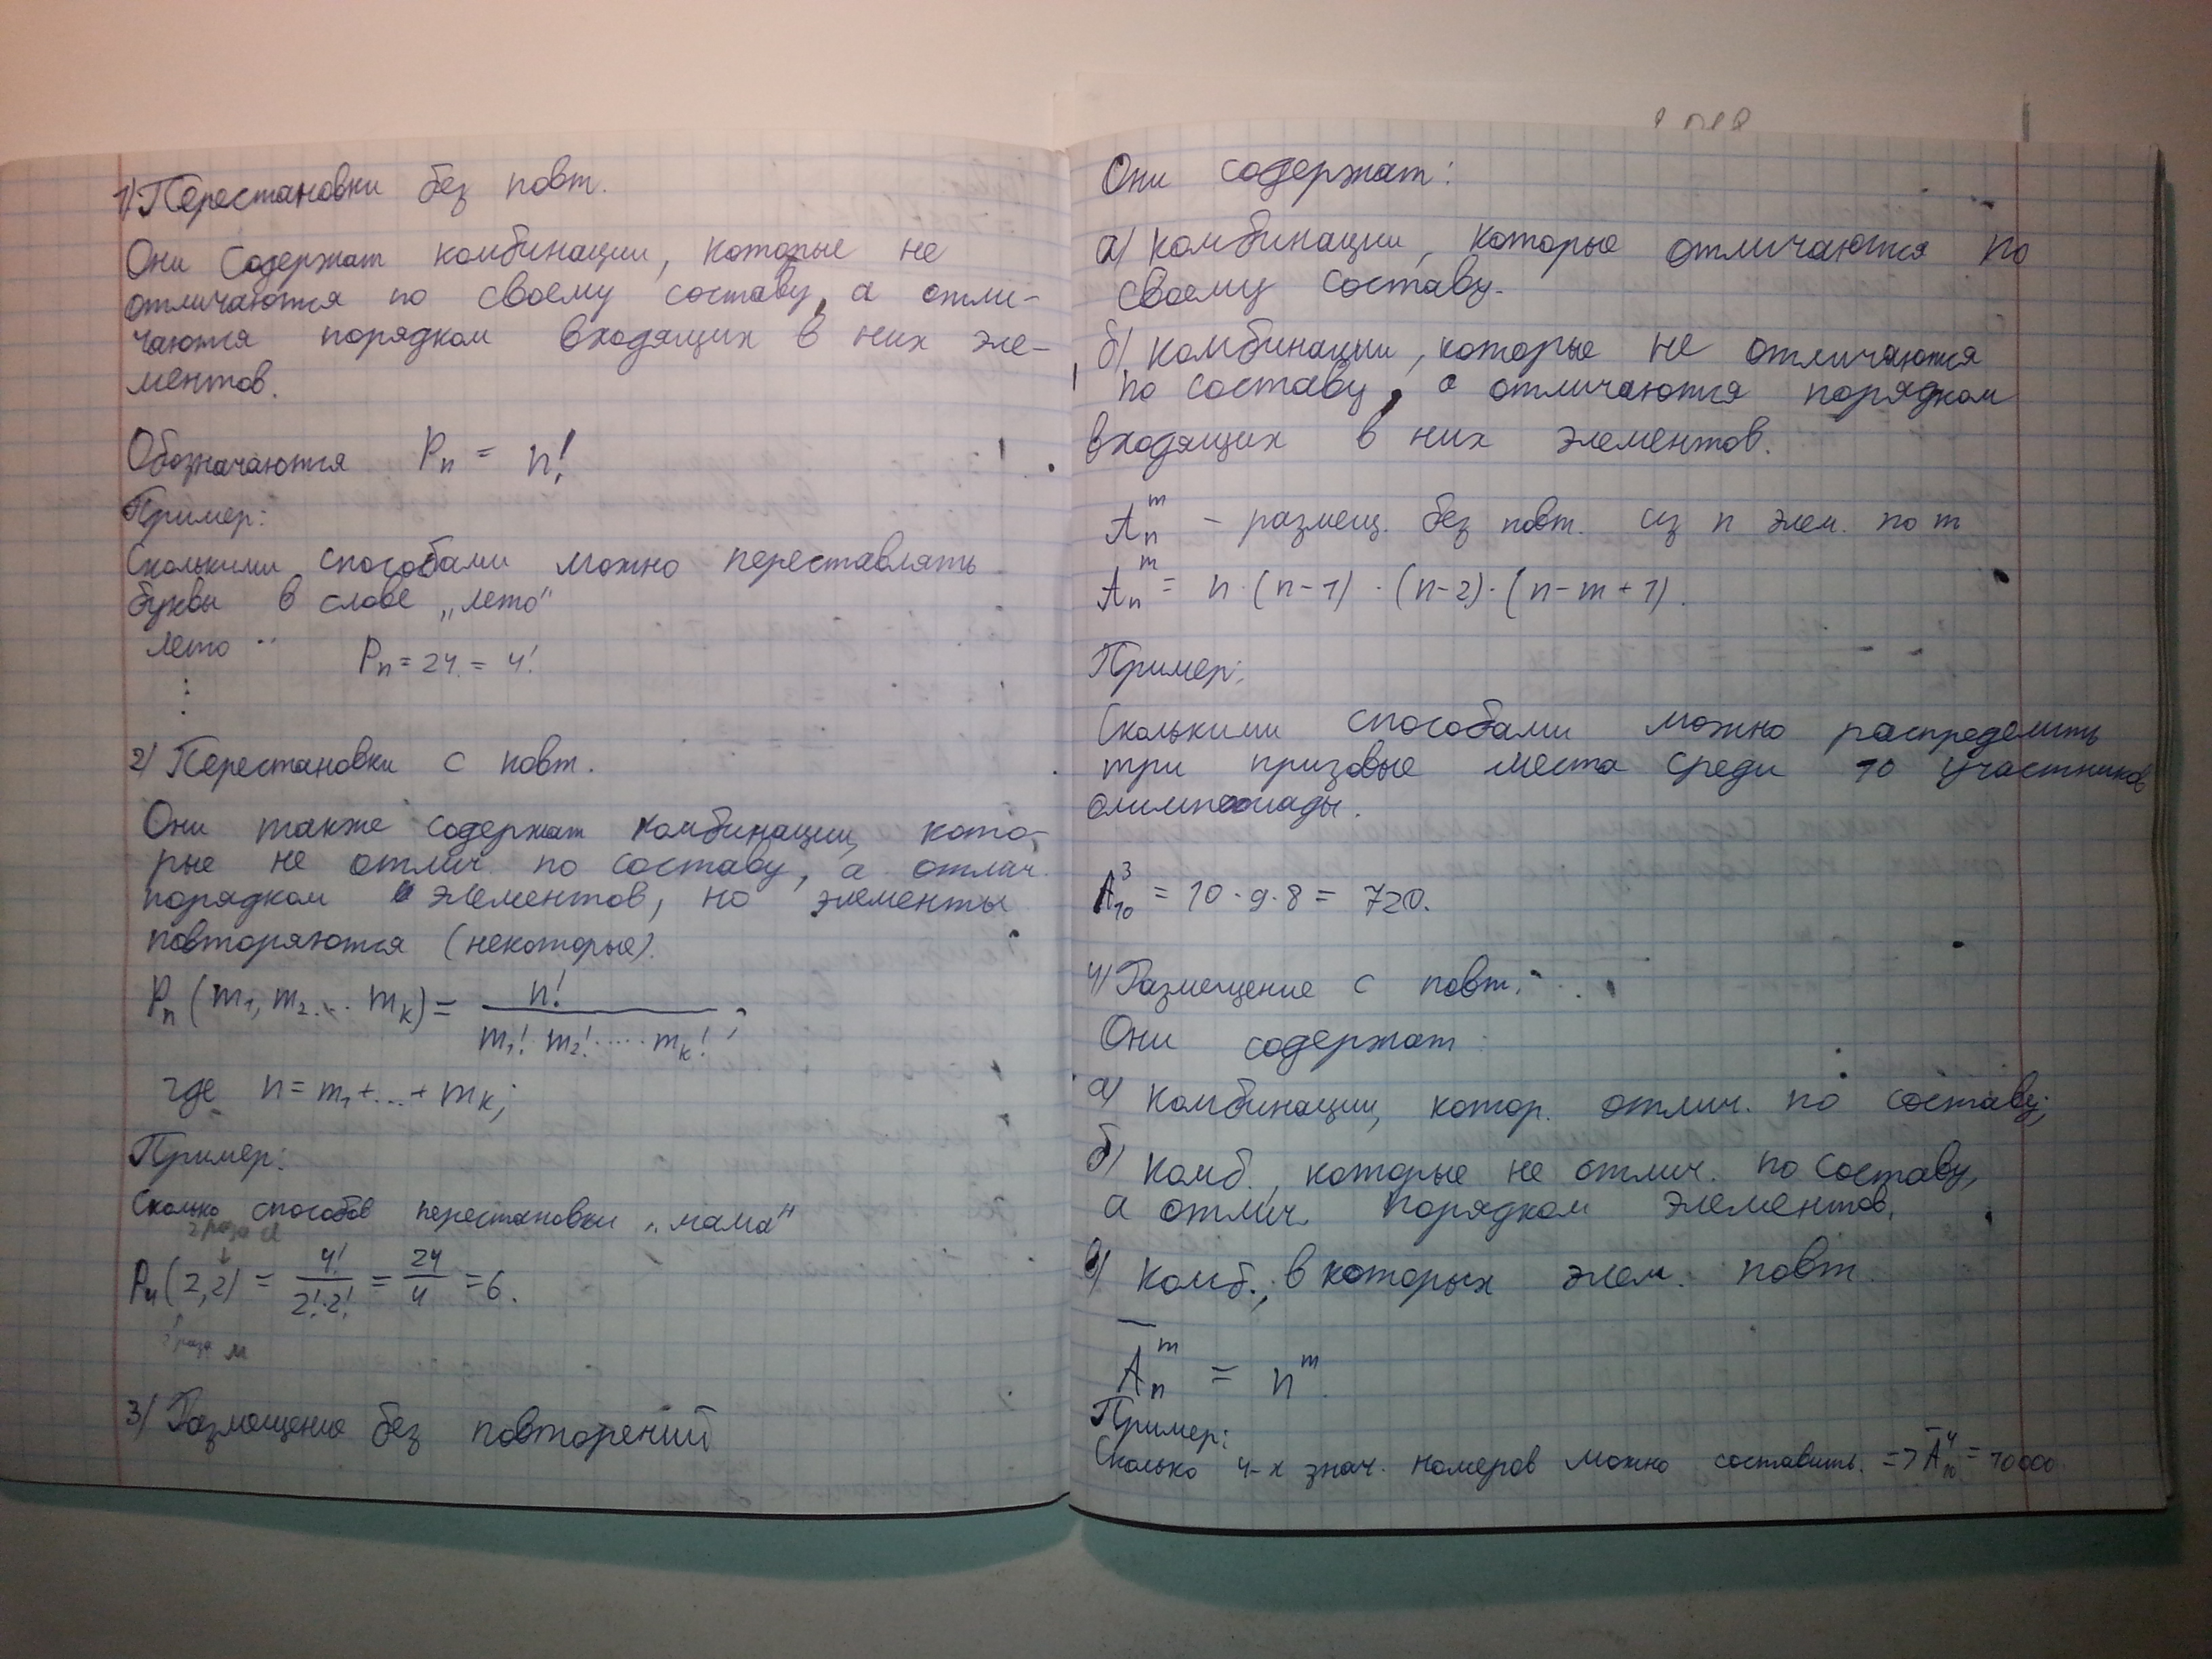 1) Перестановки без повт.
Они содержат комбинации, которые не
отличаются по своему составу, а отли-
чаются порядком входящих в них эле-
ментов.
Обозначаются Pn = n!
Пример:
Сколькими способами можно переставлять
буквы в слове „лето"
лето
Pn = 24 = 4!
⋮
2) Перестановки с повт.
Они также содержат комбинации, кото-
рые не отлич. по составу, а отлич.
порядком элементов, но элементы
повторяются (некоторые).
Pn (m1, m2 ... mk) = n! / m1! · m2! · .... mk! ;
где n = m1 + ... + mk;
Пример:
Сколько способов перестановки „мама"
2 раза а
↓
P4 (2,2) = 4! / 2!·2! = 24 / 4 = 6.
раза м
3) Размещение без повторений
Они содержат:
а) комбинации, которые отличаются по
своему составу.
б) комбинации, которые не отличаются
по составу, а отличаются порядком
входящих в них элементов.
Aₙᵐ – размещ. без повт. из n элем. по m
Aₙᵐ = n · (n-1) · (n-2) · (n-m+1).
Пример:
Сколькими способами можно распределить
три призовые места среди 10 участников
A₁₀³ = 10 · 9 · 8 = 720.
4) Размещение с повт.
Они содержат:
а) комбинации, котор. отлич. по составу;
б) комб., которые не отлич. по составу,
а отлич. порядком элементов.
в) комб., в которых элем. повт.
A̅ₙᵐ = nᵐ.
Пример:
Сколько 4-х знач. номеров можно составить. => A̅₁₀⁴ = 10000